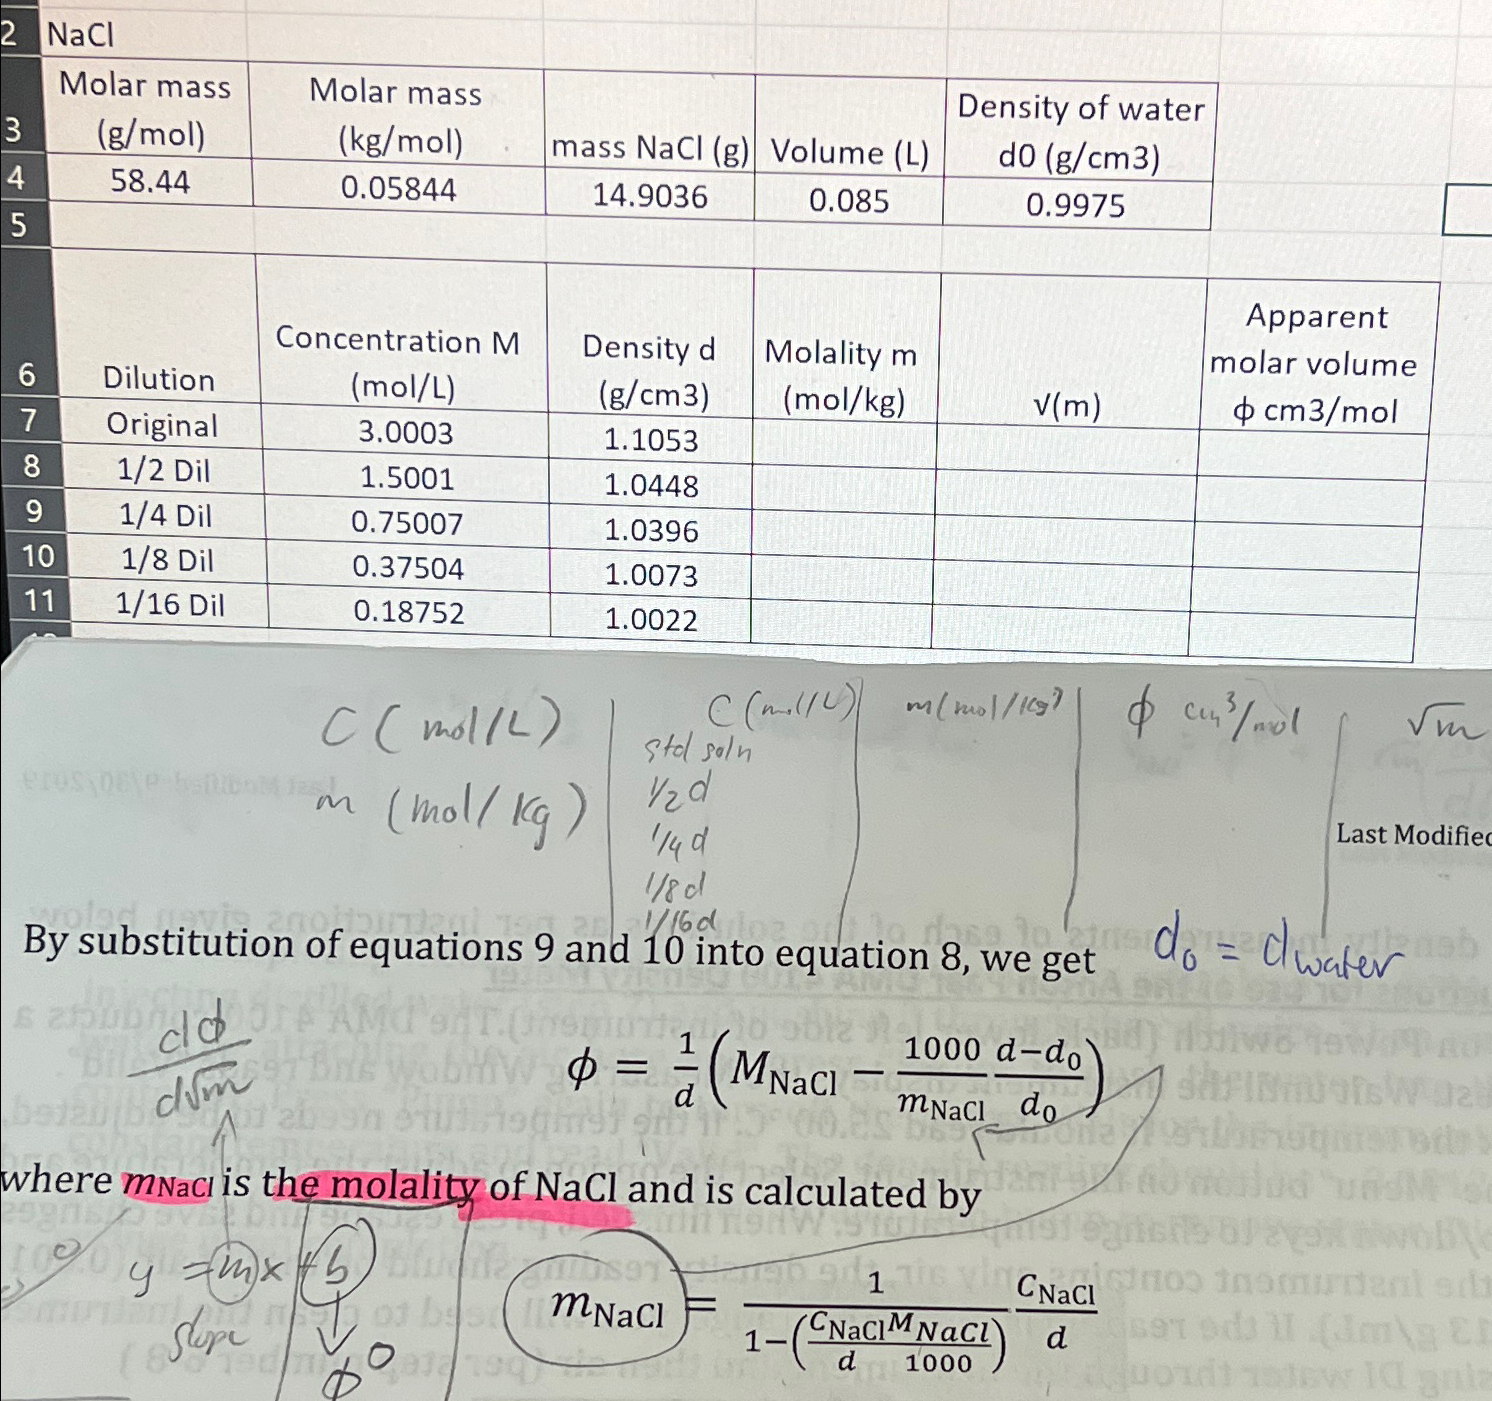 2 NaCl
3 Molar mass (g/mol) Molar mass (kg/mol) mass NaCl (g) Volume (L) Density of water d0 (g/cm3)
4 58.44 0.05844 14.9036 0.085 0.9975
5
6 Dilution Concentration M (mol/L) Density d (g/cm3) Molality m (mol/kg) √(m) Apparent molar volume ɸ cm3/mol
7 Original 3.0003 1.1053
8 1/2 Dil 1.5001 1.0448
9 1/4 Dil 0.75007 1.0396
10 1/8 Dil 0.37504 1.0073
11 1/16 Dil 0.18752 1.0022
C (mol/L)
m (mol/kg)
C (mol/L) m (mol/kg) ϕ cm³/mol √m
std soln
1/2 d
1/4 d
1/8 d
1/16 d
Last Modified
By substitution of equations 9 and 10 into equation 8, we get
d₀ = dwater
dϕ/d√m
ϕ = 1/d (M_NaCl − 1000/m_NaCl (d−d₀)/d₀)
where mNaCl is the molality of NaCl and is calculated by
y = mx + b
slope
ϕ⁰
m_NaCl = 1/(1−(C_NaCl/d M_NaCl/1000)) C_NaCl/d